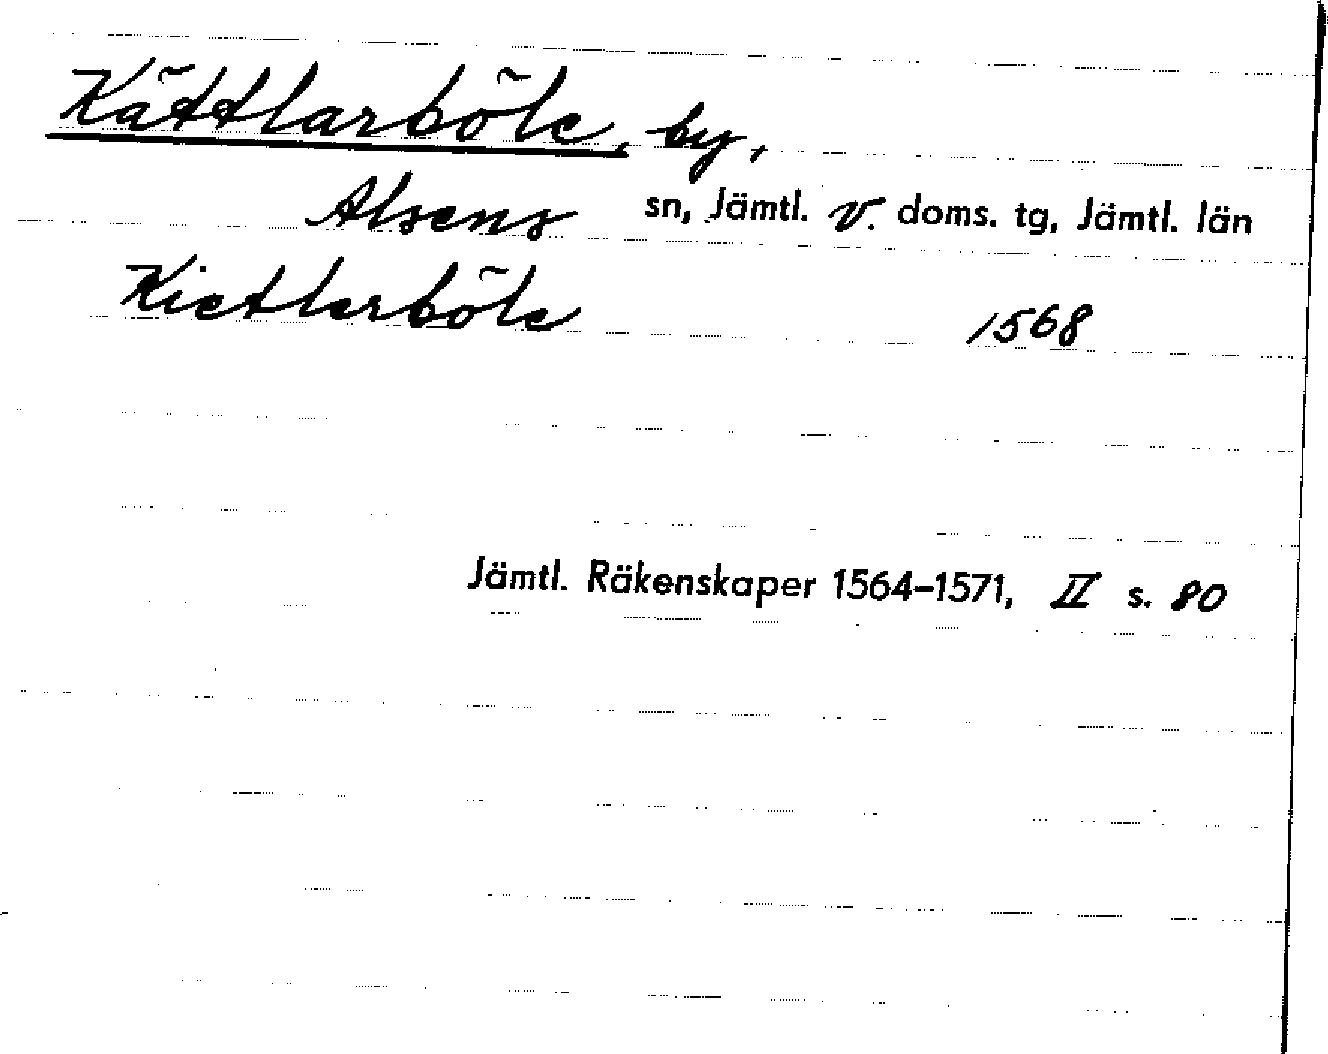 Kättlarböle, by,
Alsens sn, Jämtl. v. doms. tg, Jämtl. län
Kietlerböle 1568
Jämtl. Räkenskaper 1564-1571, II s. 80